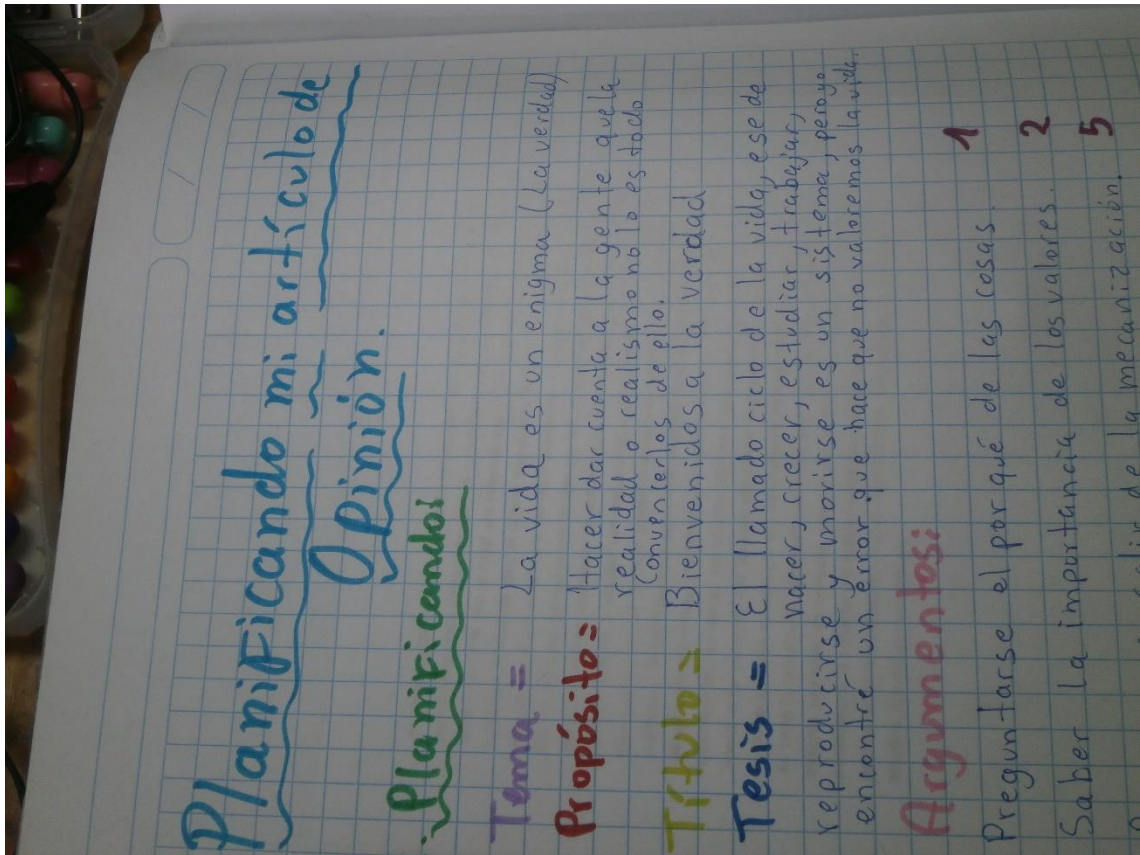 Planificando mi artículo de
Opinión.
Planificamdos
Tema = La vida es un enigma (La verdad)
Propósito = Hacer dar cuenta a la gente que la
realidad o realismo no lo es todo
Convencerlos de ello.
Título = Bienvenidos a la verdad
Tesis = El llamado ciclo de la vida, ese de
nacer, crecer, estudiar, trabajar,
reproducirse y morirse es un sistema, pero yo
encontré un error que hace que no valoremos la vida.
Argumentos:
Preguntarse el por qué de las cosas. 1
Saber la importancia de los valores. 2
de la mecanización. 5